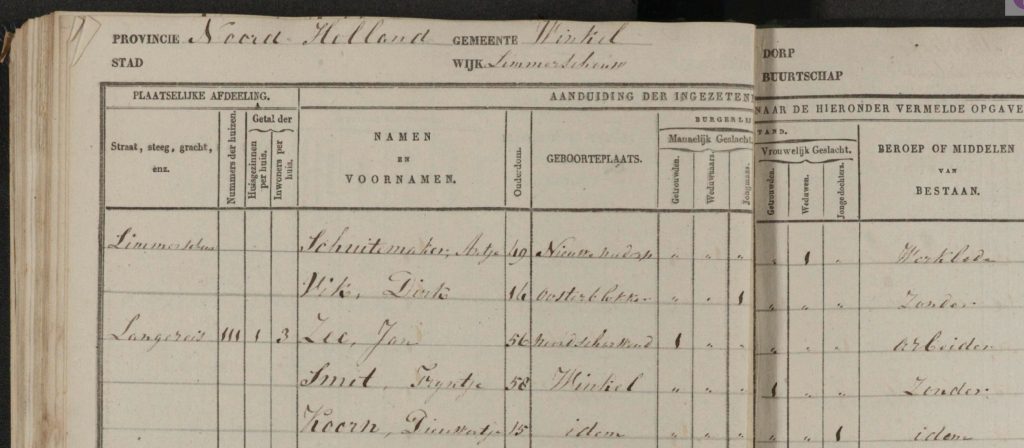 PROVINCIE Noord Holland GEMEENTE Winkel
STAD WIJK Limmerschouw
DORP
BUURTSCHAP
PLAATSELIJKE AFDEELING. AANDUIDING DER INGEZETENE NAAR DE HIERONDER VERMELDE OPGAVE
BURGERLIJ TAND.
Straat, steeg, gracht, enz.
Nummers der huizen.
Getal der
Huisgezinnen per huis.
Inwoners per huis.
NAMEN
EN
VOORNAMEN.
Ouderdom.
GEBOORTEPLAATS.
Mannelijk Geslacht.
Getrouwden. Weduwnaars. Jongmans.
Vrouwelijk Geslacht.
Getrouwden. Weduwen. Jongedochters.
BEROEP OF MIDDELEN
VAN
BESTAAN.
Schuitemaker, Aatje 49 „ „ „ „ 1 „
Vik, Dirk 16 Oosterblokker „ „ 1 „ „ „ Zonder
Langereis 111 1 3 Zee, Jan 56 1 „ „ „ „ „ arbeider
Smit, Tryntje 58 Winkel „ „ „ 1 „ „ Zonder
Koorn, Dieuwertje 15 idem „ „ „ „ „ 1 idem